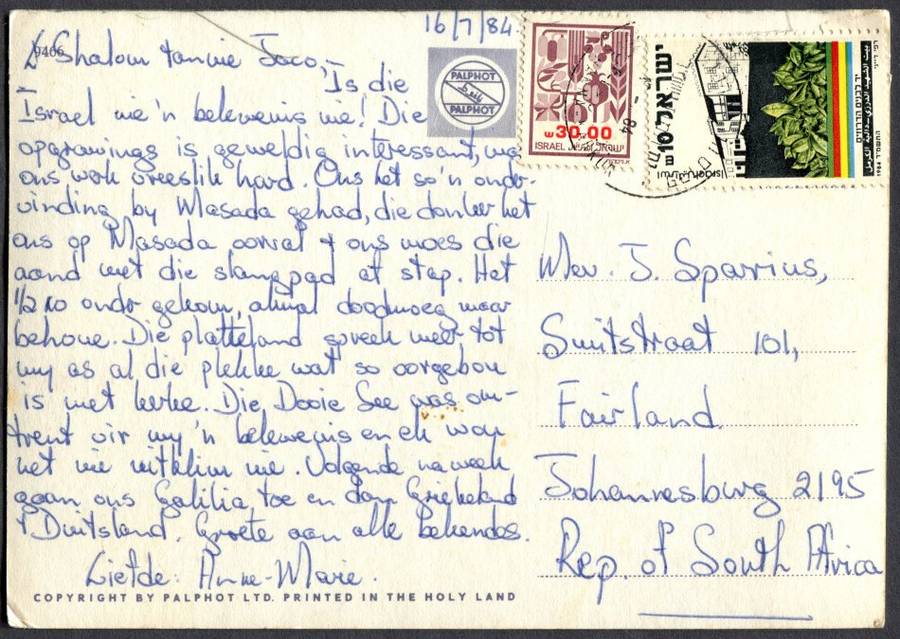 16/7/84
9466
Shalom tannie Joco,
Is die
Israel nie 'n belewenis nie! Die
opgrawings is geweldig interessant, maar
ons werk vreeslik hard. Ons het so 'n onder-
vinding by Masada gehad, die donker het
ons op Masada oorval + ons moes die
aand met die slangpad af stap. Het
1/2 10 onder gekom, almal doodmoeg maar
behoue. Die platteland spreek meer tot
my as al die plekke wat so oorgebou
is met kerke. Die Dooie See was om-
trent vir my 'n belewenis en ek wou
net nie uitklim nie. Volgende naweek
gaan ons Galilia toe en dan Griekeland
+ Duitsland. Groete aan alle bekendes.
Liefde: Anne-Marie.
COPYRIGHT BY PALPHOT LTD. PRINTED IN THE HOLY LAND
PALPHOT
PALPHOT
30.00
ISRAEL ישראל اسرائيل
ישראל
Israel اسرائيل
1984
Mev. J. Sparrius,
Smitstraat 101,
Fairland
Johannesburg 2195
Rep. of South Africa